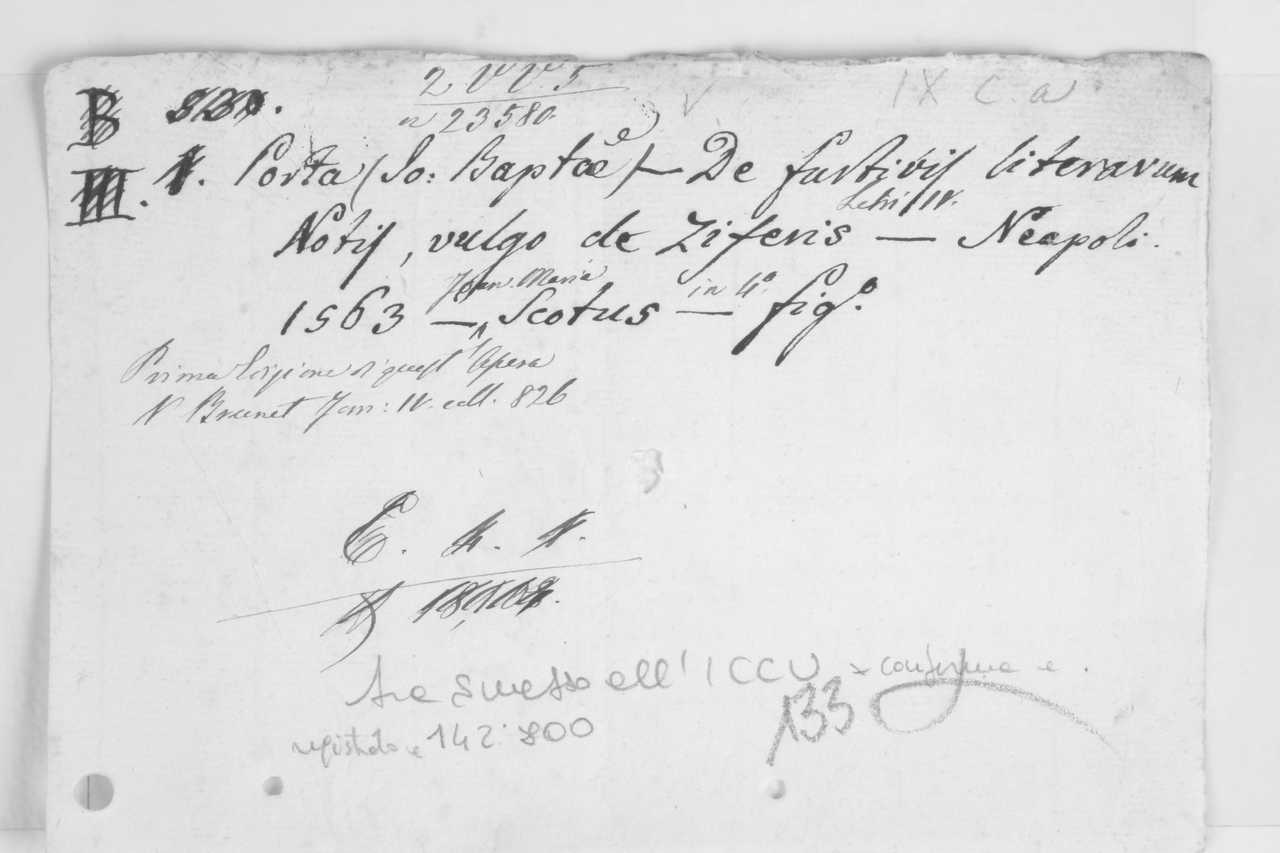 2 VV. 5
n 23580
IX C. a
B
III. Porta (Jo: Baptae) — De furtivis literarum
Libri IV.
Notis, vulgo de Ziferis — Neapoli.
Joan. Maria
in 4°.
1563 — Scotus — fig.°
Prima Edizione di quest' Opera
V Brunet Tom: IV. coll. 826
E.
all'ICCU x conferma e.
registrato 142.800
133